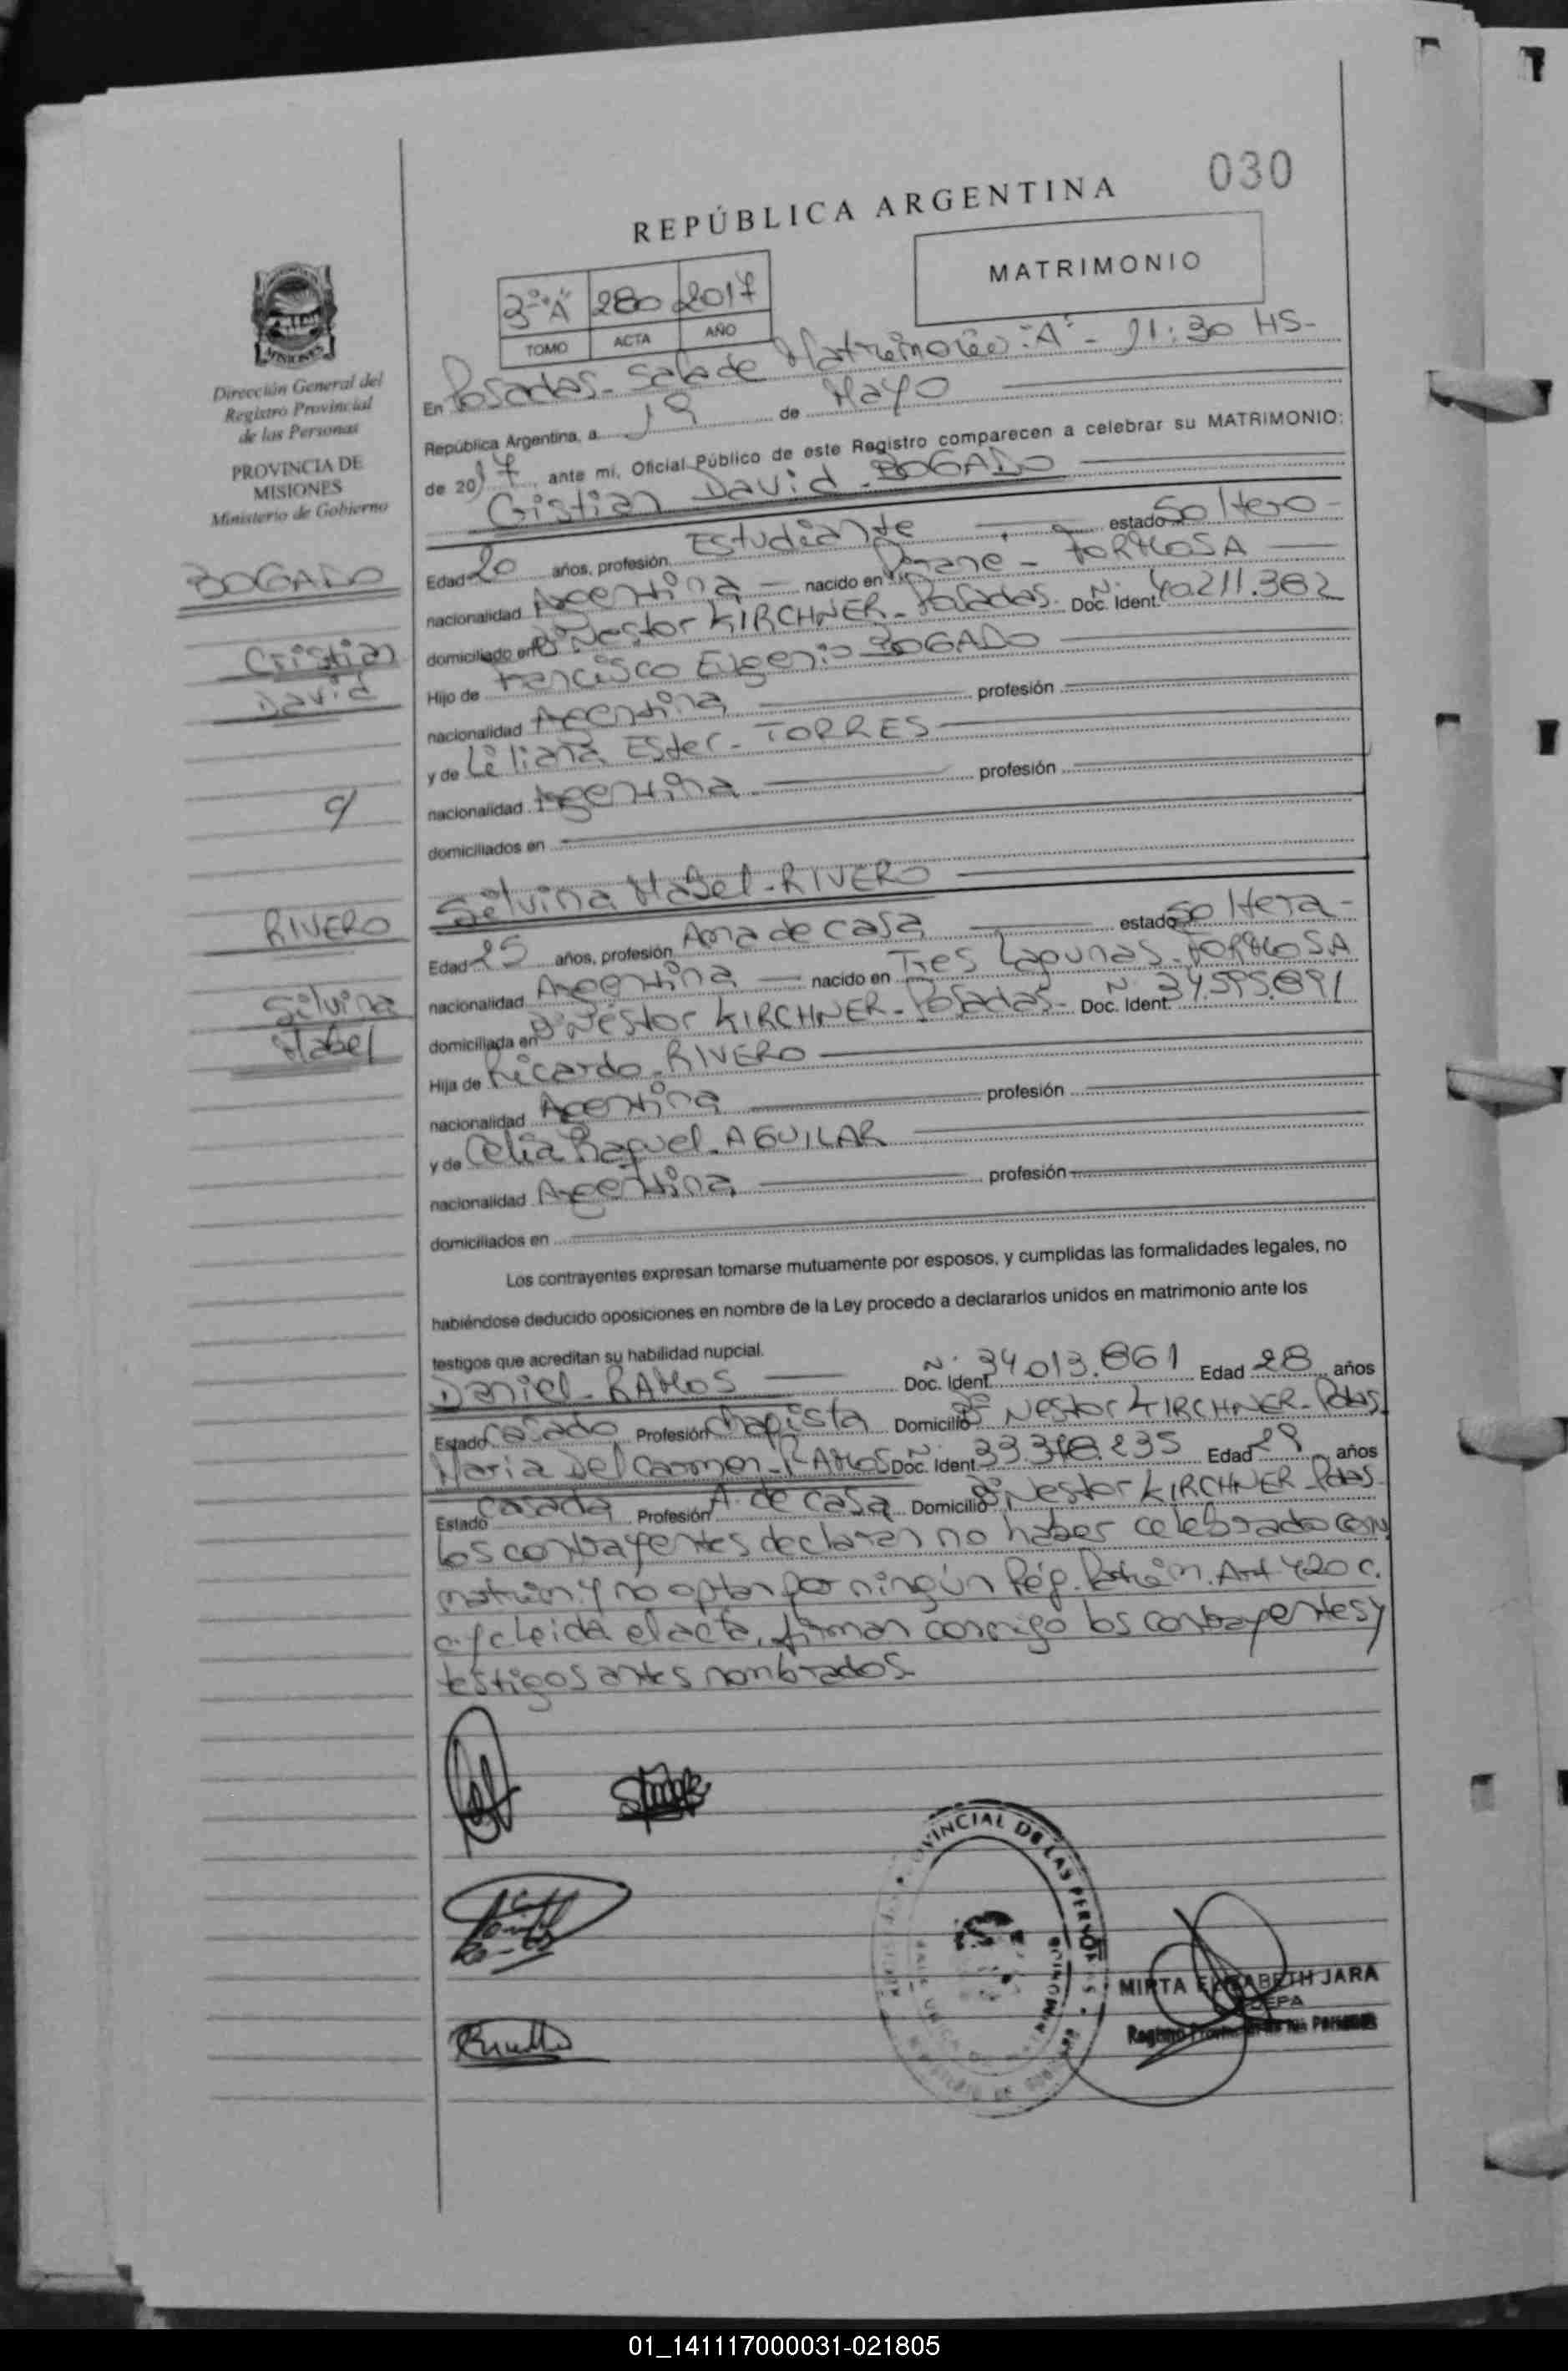 030
REPÚBLICA ARGENTINA
MATRIMONIO
3º "A" 280 2017
TOMO ACTA AÑO
Dirección General del
Registro Provincial
de las Personas
PROVINCIA DE
MISIONES
Ministerio de Gobierno
BOGADO
Cristian
David
c/
RIVERO
Silvina
Mabel
En Posadas - Sala de Matrimonio: "A" - 11:30 HS-
República Argentina, a 19 de Mayo
de 2017 ante mi, Oficial Público de este Registro comparecen a celebrar su MATRIMONIO:
Cristian David - BOGADO
Edad 20 años, profesión Estudiante estado Soltero -
nacionalidad Argentina - nacido en Pirané - FORMOSA
domiciliado en Bº Nestor KIRCHNER - Posadas. Doc. Ident. Nº 40.211.382
Hijo de Francisco Eugenio BOGADO
nacionalidad Argentina profesión
y de Liliana Ester - TORRES
nacionalidad Argentina profesión
domiciliados en
Silvina Mabel - RIVERO
Edad 25 años, profesión Ama de casa estado Soltera -
nacionalidad Argentina - nacido en Tres Lagunas - FORMOSA
domiciliada en Bº Nestor KIRCHNER - Posadas - Doc. Ident. Nº 34.595.891
Hija de Ricardo - RIVERO
nacionalidad Argentina profesión
y de Celia Raquel - AGUILAR
nacionalidad Argentina profesión
domiciliados en
Los contrayentes expresan tomarse mutuamente por esposos, y cumplidas las formalidades legales, no
habiéndose deducido oposiciones en nombre de la Ley procedo a declararlos unidos en matrimonio ante los
testigos que acreditan su habilidad nupcial.
Daniel - RAMOS Doc. Ident. Nº 34.013.861 Edad 28 años
Estado Casado Profesión Chapista Domicilio Bº Nestor KIRCHNER - Pdas.
Maria Del Carmen - RAMOS Doc. Ident. Nº 33.378.235 Edad 29 años
Estado Casada Profesión A. de casa Domicilio Bº Nestor KIRCHNER - Pdas-
los contrayentes declaran no haber celebrado CONV.
matrim. y no optan por ningún Rég. Patrim. Art 420 C.
c. y c leida el acta, firman conmigo los contrayentes y
testigos antes nombrados-
VINCIAL DE LAS PERSONAS
MIRTA ELISABETH JARA
Registro Provincial de las Personas
01_141117000031-021805